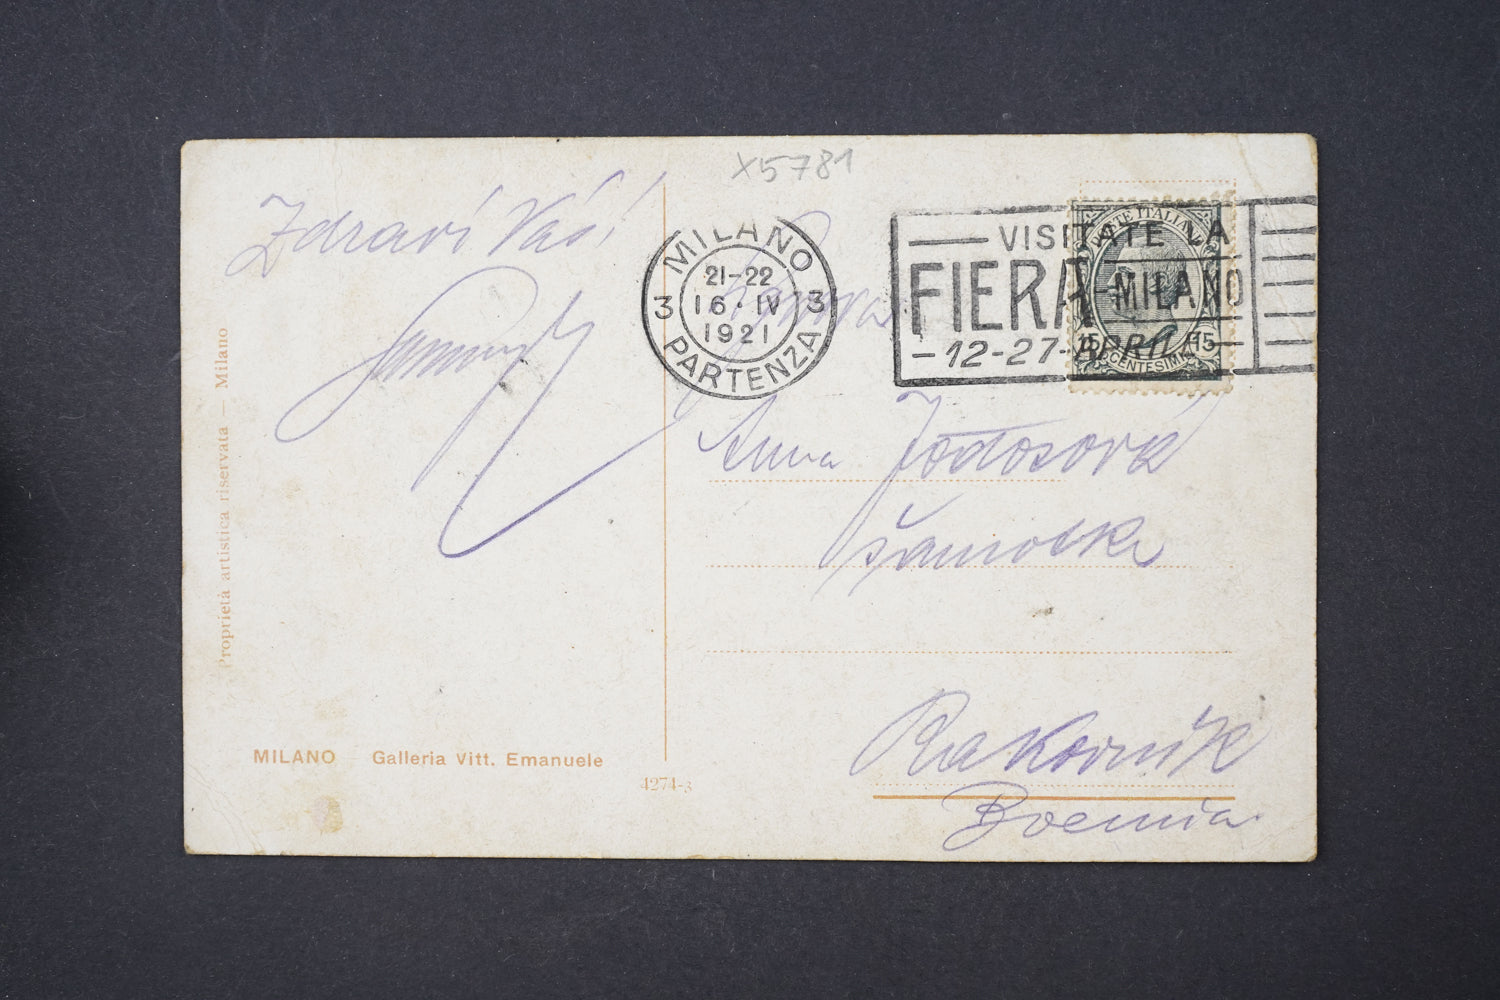 X5781
Zdraví Váš!
MILANO
21-22
3 16·IV 3
1921
PARTENZA
VISITATE LA
FIERA-MILANO
-12-27-APRILE-
POSTE ITALIANE
15 15
CENTESIMI
Anna
Rakovník
Boemia
Proprietà artistica riservata — Milano
MILANO Galleria Vitt. Emanuele
4274-3